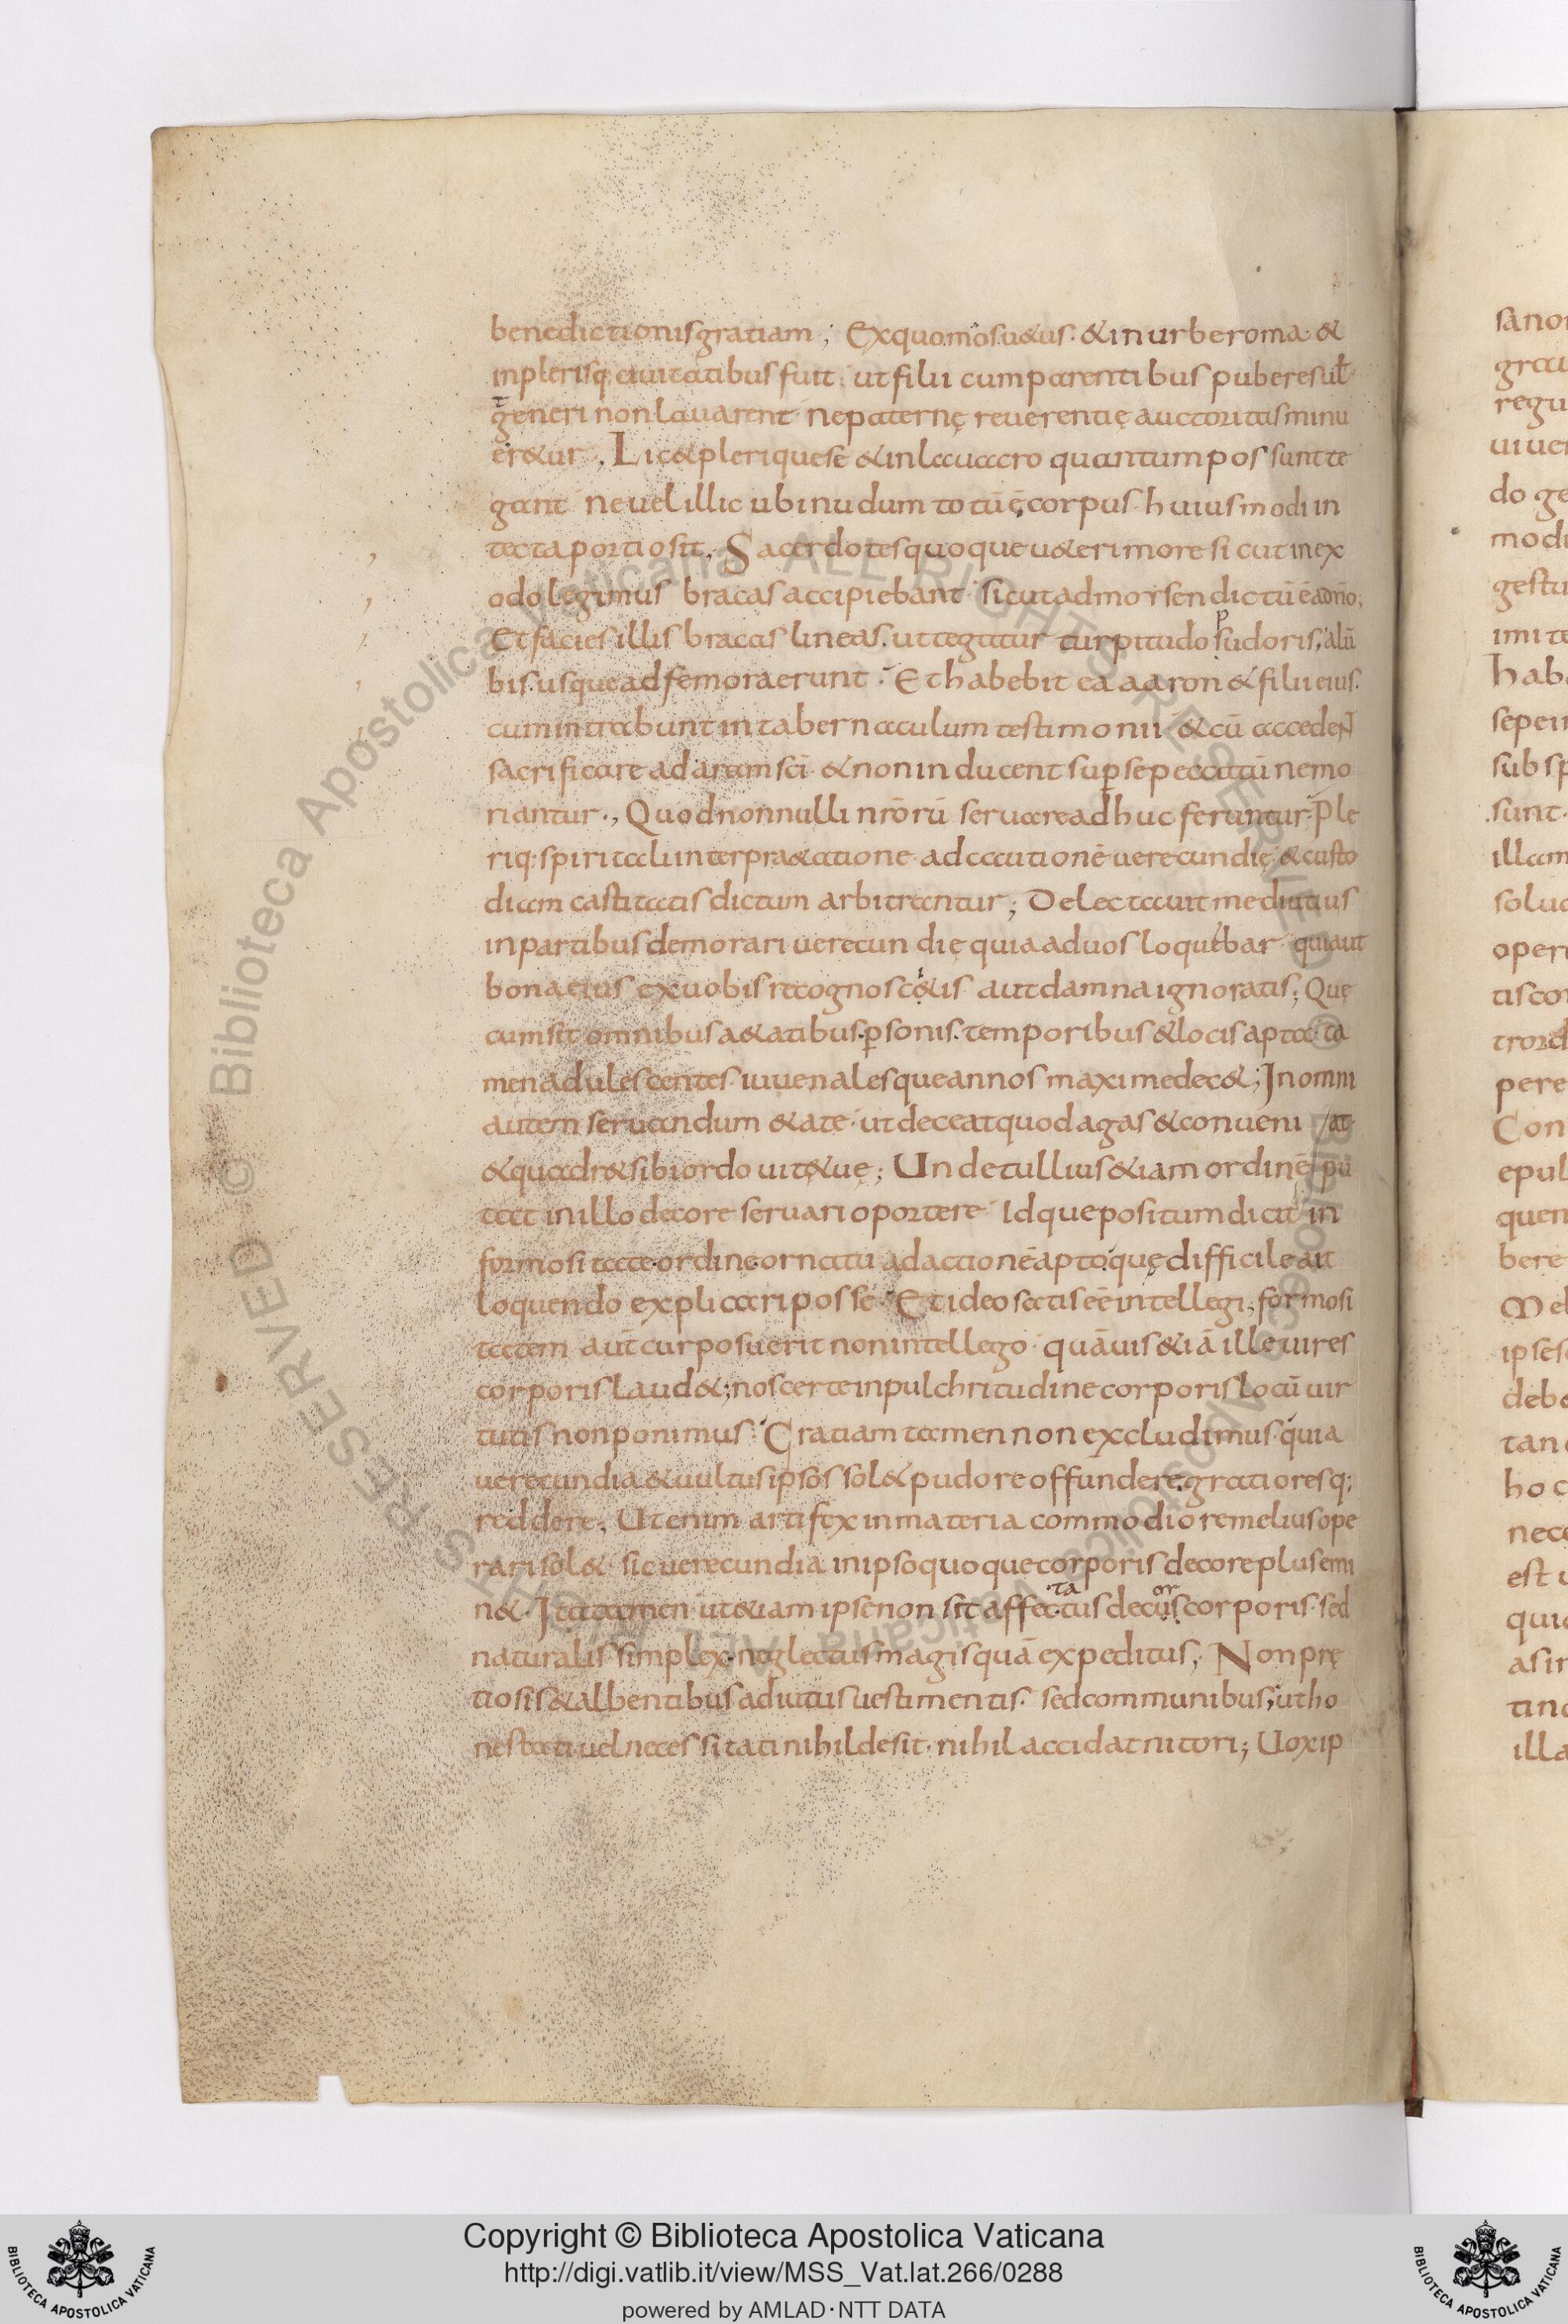 benedictionis gratiam; Ex quo mos uetus. & in urbe roma. &
in plerisq; ciuitatibus fuit. ut filii cum parentibus puberes ul̄
generi non lauarent. ne paternę reuerentię auctoritas minu
er&ur. Lic& plerique se & in lauacro quantum possunt te
gant. ne uel illic ubi nudum totū ē corpus. huiusmodi in
tecta portio sit. Sacerdotes quoque u&eri more sicut in ex
odo legimus bracas accipiebant. sicut ad moysen dictū ē a dn̄o;
Et facies illis bracas lineas. ut tegatur turpitudo pudoris. a lū
bis. usque ad femora erunt. Et habebit ea aaron & filii eius.
cum intrabunt in tabernaculum testimonii. & cū accedeN̄
sacrificare ad aram sc̄i. & non inducent sup̱ se peccatū ne mo
riantur., Quod nonnulli nr̄orū seruare adhuc feruntur. Ple
riq; spiritali interpr&atione. ad cautionē uerecundię. & custo
diam castitatis dictum arbitrantur; Delectauit me diutius
in partibus demorari uerecundię quia ad uos loquebar. qui aut
bona eius ex uobis recognoscitis aut damna ignoratis; Quę
cum sit omnibus a&atibus. p̱sonis. temporibus & locis apta. ta
men adulescentes iuuenalesque annos maxime dec&; In omni
autem seruandum &ate. ut deceat quod agas & conueni/at
& quadr& sibi ordo uitę tuę; Unde tullius &iam ordinē pu
tat in illo decore seruari oportere. Idque positum dicit in
formositate. ordine. ornatu ad actionē apto. quę difficile ait
loquendo explicari posse. Et ideo satis eē intellegi. formosi
tatem aut̄ cur posuerit non intellego. quāuis &iā ille uires
corporis laud&; nos certe in pulchritudine corporis locū uir
tutis non ponimus. Gratiam tamen non excludimus. quia
uerecundia & uultus ipsos sol& pudore offundere. gratioresq;
reddere. Ut enim artifex in materia commodiore melius ope
rari sol& sic uerecundia in ipso quoque corporis decore plus emi
n&. Ita tamen ut &iam ipse non sit affectatus decor corporis. sed
naturalis simplex. neglectus magis quā expeditus. Non prę
tiosis & albentibus adiutus uestimentis. sed communibus; ut ho
nestati uel necessitati nihil desit. nihil accidat nitori; Uox ip
Copyright © Biblioteca Apostolica Vaticana
http://digi.vatlib.it/view/MSS_Vat.lat.266/0288
powered by AMLAD·NTT DATA